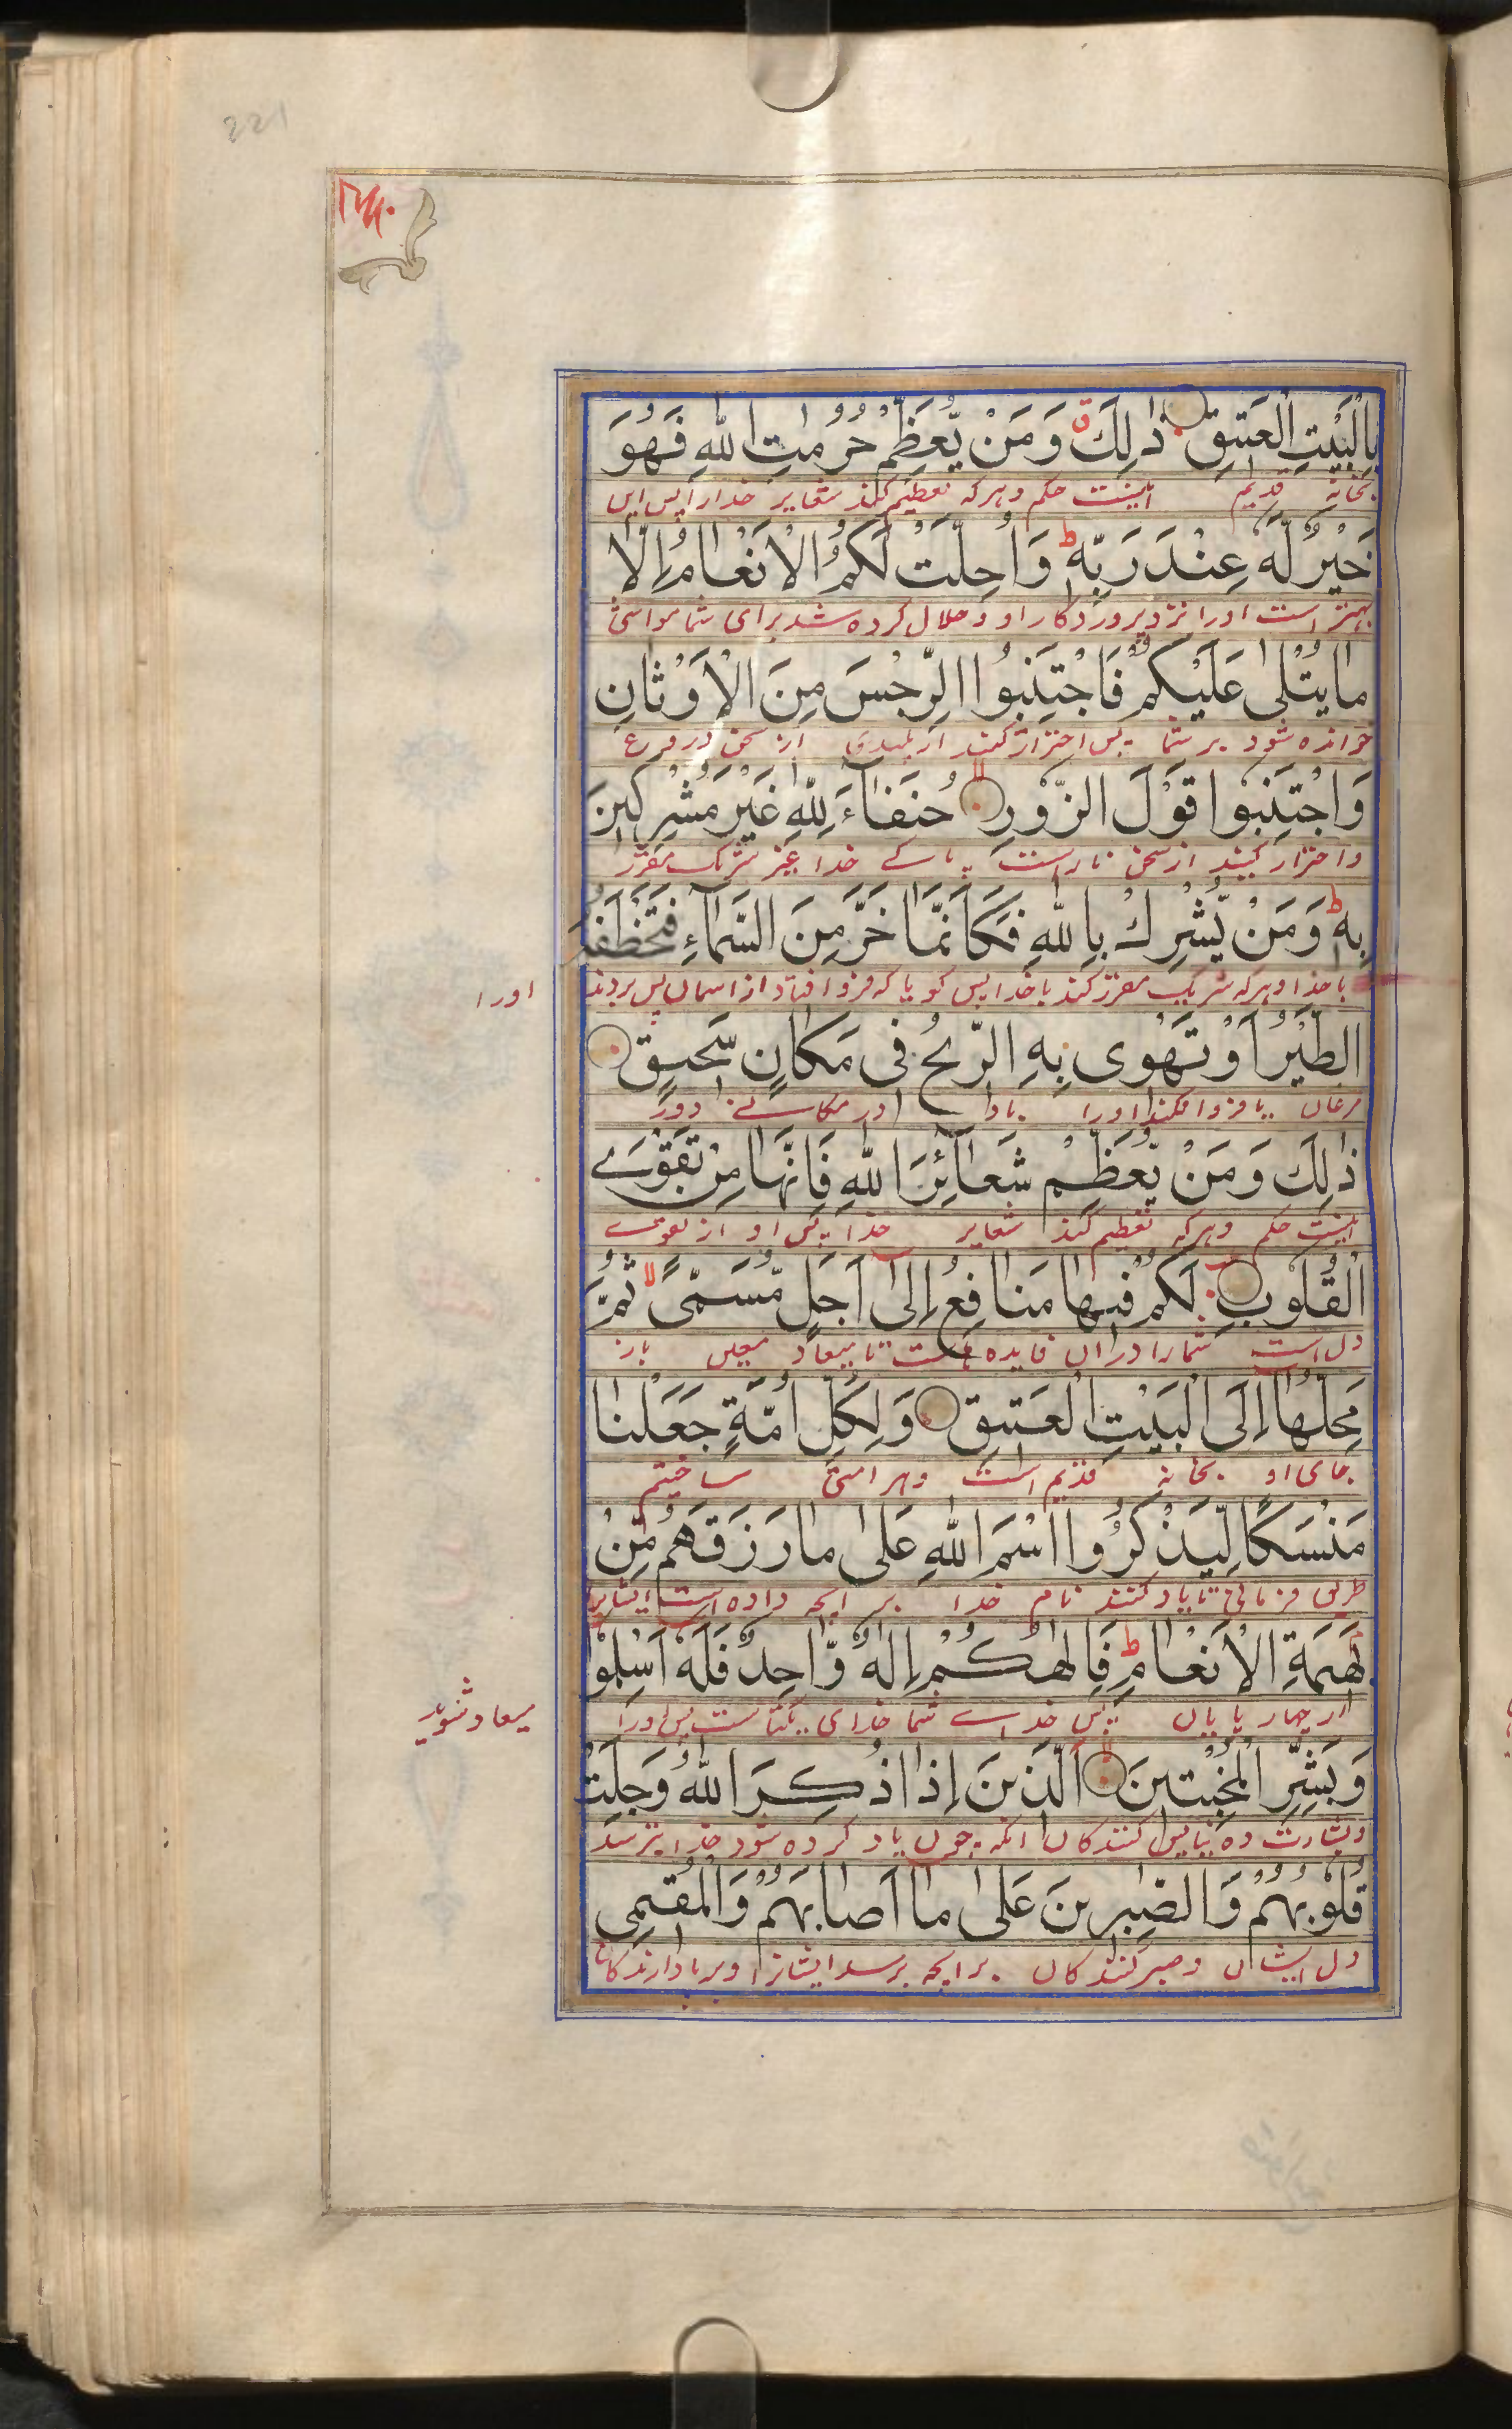 221
بِالْبَيْتِ الْعَتِيْقِ ذٰلِكَ ق وَمَنْ يُّعَظِّمْ حُرُمٰتِ اللّٰهِ فَهُوَ
بخانه قدیم اینست حکم وهرکه تعظیم کند شعایر خدا را پس این
خَيْرٌ لَّهٗ عِنْدَ رَبِّهٖ ط وَاُحِلَّتْ لَكُمُ الْاَنْعَامُ اِلَّا
بهتر است اورا نزد پروردکار او وحلال کرده شد برای شما مواشی
مَا يُتْلٰى عَلَيْكُمْ فَاجْتَنِبُوا الرِّجْسَ مِنَ الْاَوْثَانِ
خوانده شود بر شما پس احتراز کنید از پلیدی از سخن دروغ
وَاجْتَنِبُوْا قَوْلَ الزُّوْرِ لا حُنَفَآءَ لِلّٰهِ غَيْرَ مُشْرِكِيْنَ
واحتراز کنید از سخن ناراست پاکے خدا غیر شریک مقرر
بِهٖ ط وَمَنْ يُّشْرِكْ بِاللّٰهِ فَكَاَنَّمَا خَرَّ مِنَ السَّمَآءِ فَتَخْطَفُهُ
با خدا وهرکه شریک مقرر کند با خدا پس کویا که فرو افتاد از اسمان پس بردند اورا
الطَّيْرُ اَوْ تَهْوِىْ بِهِ الرِّيْحُ فِىْ مَكَانٍ سَحِيْقٍ
مرغان یا فرو افکند اورا باد در مکانے دور
ذٰلِكَ وَمَنْ يُّعَظِّمْ شَعَآئِرَ اللّٰهِ فَاِنَّهَا مِنْ تَقْوَے
اینست حکم وهرکه تعظیم کند شعایر خدا پس او از تقوے
الْقُلُوْبِ لَكُمْ فِيْهَا مَنَافِعُ اِلٰٓى اَجَلٍ مُّسَمًّى ثُمَّ
دل است شمارا دران فایده هاست تا میعاد معین باز
مَحِلُّهَا اِلَى الْبَيْتِ الْعَتِيْقِ وَلِكُلِّ اُمَّةٍ جَعَلْنَا
جای او بخانه قدیم است وهر امتی ساختیم
مَنْسَكًا لِّيَذْكُرُوا اسْمَ اللّٰهِ عَلٰى مَا رَزَقَهُمْ مِّنْ
طریق قربانی تا یاد کنند نام خدا بر انچه داده است ایشانرا
بَهِيْمَةِ الْاَنْعَامِ ط فَاِلٰهُكُمْ اِلٰهٌ وَّاحِدٌ فَلَهٗ اَسْلِمُوْا
از چهار پایان پس خداے شما خدای یکتا است پس اورا
وَبَشِّرِ الْمُخْبِتِيْنَ الَّذِيْنَ اِذَا ذُكِرَ اللّٰهُ وَجِلَتْ
وبشارت ده نیایش کنندکان انکه چون یاد کرده شود خدا بترسد
قُلُوْبُهُمْ وَالصّٰبِرِيْنَ عَلٰى مَا اَصَابَهُمْ وَالْمُقِيْمِى
دل ایشان وصبر کنندکان بر انچه برسد ایشانرا وبرپا دارندکان